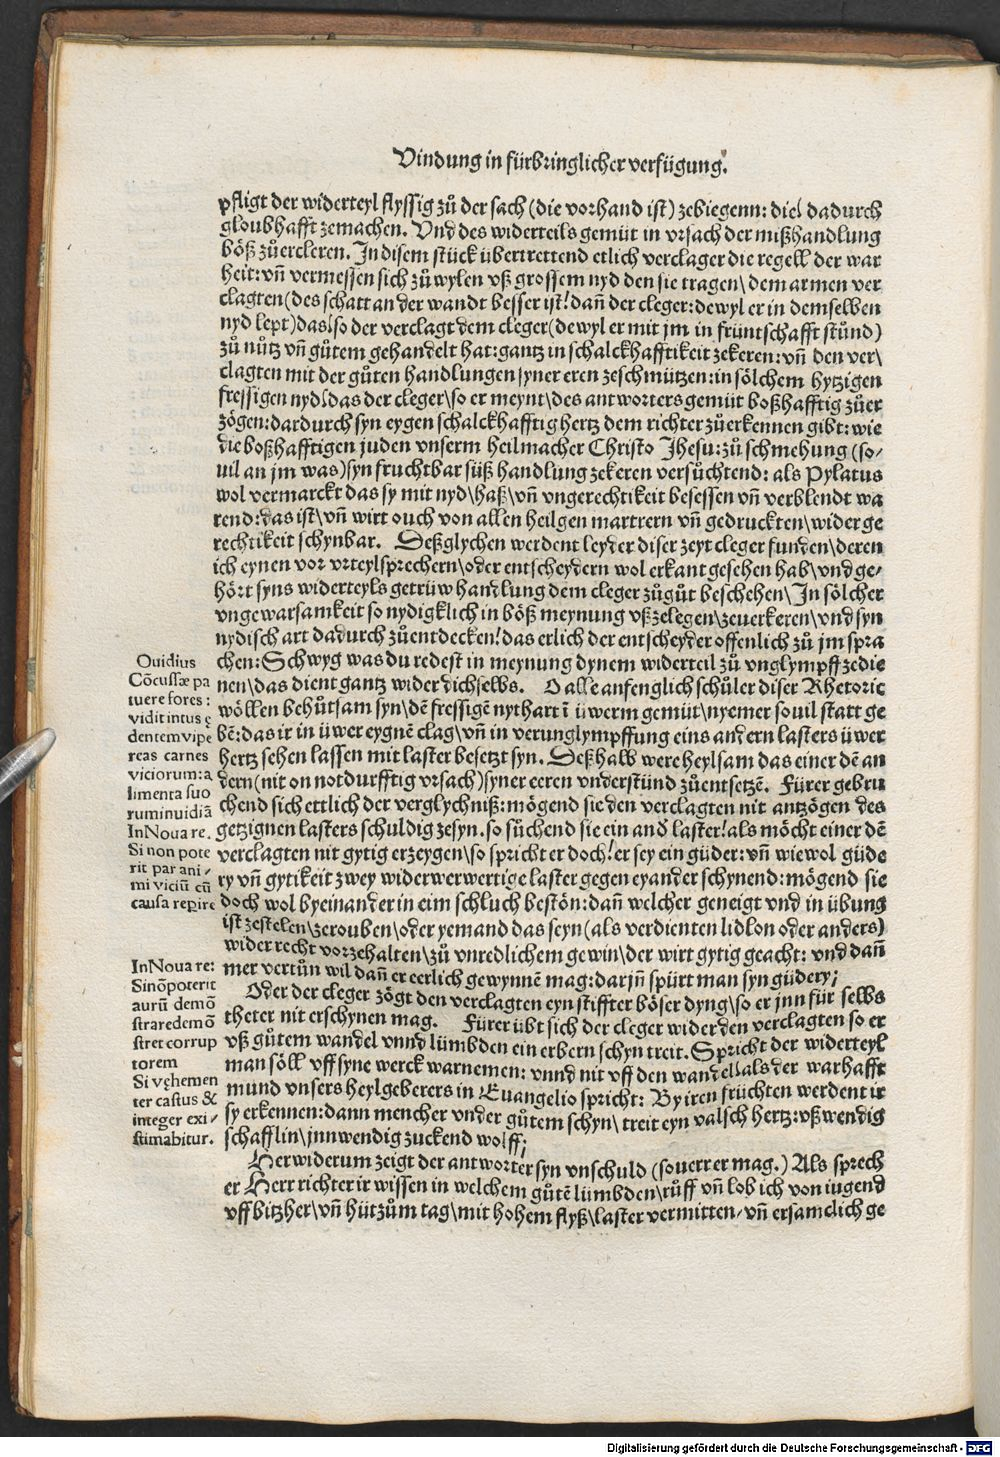 Vindung in fürbringlicher verfügung.
pfligt der widerteyl flyssig zů der sach (die vorhand ist) zebiegenn: die\ dadurch
gloubhafft zemachen. Vnd des widerteils gemüt in vrsach der mißhandlung
böß zůercleren. In disem stück übertrettend etlich verclager die regell der war
heit: vñ vermessen sich zůwylen vß grossem nyd den sie tragen\ dem armen ver
clagten (des schatt an der wandt besser ist! dañ der cleger: dewyl er in demselben
nyd lept) das\ so der verclagt dem cleger (dewyl er mit jm in früntschafft stůnd)
zů nůtz vñ gůtem gehandelt hat: gantz in schalckhafftikeit zekeren: vñ den ver\
clagten mit der gůten handlungen syner eren zeschmützen: in sölchem hytzigen
fressigen nyd\ das der cleger\ so er meynt\ des antworters gemüt boßhafftig zůer
zögen: dardurch syn eygen schalckhafftig hertz dem richter zůerkennen gibt: wie
die boßhafftigen juden vnserm heilmacher Christo Jhesu: zů schmehung (so-
uil an jm was) syn fruchtbar süß handlung zekeren versůchtend: als Pylatus
wol vermarckt das sy mit nyd\ haß\ vñ vngerechtikeit besessen vñ verblendt wa
rend: das ist\ vñ wirt ouch von allen heilgen martrern vñ gedruckten\ wider ge
rechtikeit schynbar. Deßglychen werdent leyder diser zeyt cleger funden\ deren
ich eynen vor vrteylsprechern\ oder entscheydern wol erkant gesehen hab\ vnd ge-
hört syns widerteyls getrüw handlung dem cleger zůgůt beschehen\ In sölcher
vngewarsamkeit so nydigklich in böß meynung vßzelegen\ zeuerkeren\ vnd syn
nydisch art dadurch zůentdecken! das erlich der entscheyder offenlich zů jm spra
chen: Schwyg was du redest in meynung dynem widerteil zů vnglympff zedie
nen\ das dient gantz wider dich selbs. O alle anfenglich schůler diser Rhetoric
wöllen behůtsam syn\ dē fressigē nythart ī üwerm gemüt\ nyemer souil statt ge
bē: das ir in üwer eygnē clag\ vñ in verunglympffung eins andern lasters üwer
hertz sehen lassen mit laster besetzt syn. Deßhalb were heylsam das einer dē an
dern (nit on notdurfftig vrsach) syner eeren vnderstůnd zůentsetzē. Fürer gebru
chend sich ettlich der verglychniß: mögend sie den verclagten nit antzögen des
getzignen lasters schuldig zesyn. so sůchend sie ein and̄ laster! als möcht einer dē
verclagten nit gytig erzeygen\ so spricht er doch! er sey ein güder: vñ wiewol güde
ry vñ gytikeit zwey widerwerwertige laster gegen eyander schynend: mögend sie
doch wol byeinander in eim schluch bestōn: dañ welcher geneigt vnd in übung
ist zestelen\ zerouben\ oder yemand das seyn (als verdienten lidlon oder anders)
wider recht vorzehalten\ zů vnredlichem gewin\ der wirt gytig geacht: vnd dañ
mer vertůn wil dañ er eerlich gewynnē mag: darjñ spürt man syn güdery;
Oder der cleger zögt den verclagten eyn stiffter böser dyng\ so er jnn für selbs
theter nit erschynen mag. Fürer übt sich der cleger wider den verclagten so er
vß gůtem wandel vnnd lümbden ein erbern schyn treit. Spricht der widerteyl
man söll vff syne werck warnemen: vnnd nit vff den wandel\ als der warhafft
mund vnsers heylgeberers in Euangelio spricht: By iren früchten werdent ir
sy erkennen: dann mencher vnder gůtem schyn\ treit eyn valsch hertz: vßwendig
schafflin\ jnnwendig zuckend wolff;
Herwiderum zeigt der antworter syn vnschuld (so uerr er mag.) Als sprech
er Herr richter ir wissen in welchem gůtē lümbden\ růff vñ lob ich von iugend
vff bitzher\ vñ hützům tag\ mit hohem flyß\ laster vermitten- vñ ersamclich ge
Ouidius
Cōcussæ pa
tuere fores :
vidit intus ę
dentem vipe
reas carnes
viciorum: a
limenta suo
rum inuidiā
In Noua re.
Si non pote
rit par ani-
mi viciū cū
causa reperire
In Noua re:
Sinōpoterit
aurū demō
strare demō
stret corrup
torem
Si vęhemen
ter castus &
integer exi-
stimabitur.
Digitalisierung gefördert durch die Deutsche Forschungsgemeinschaft - DFG